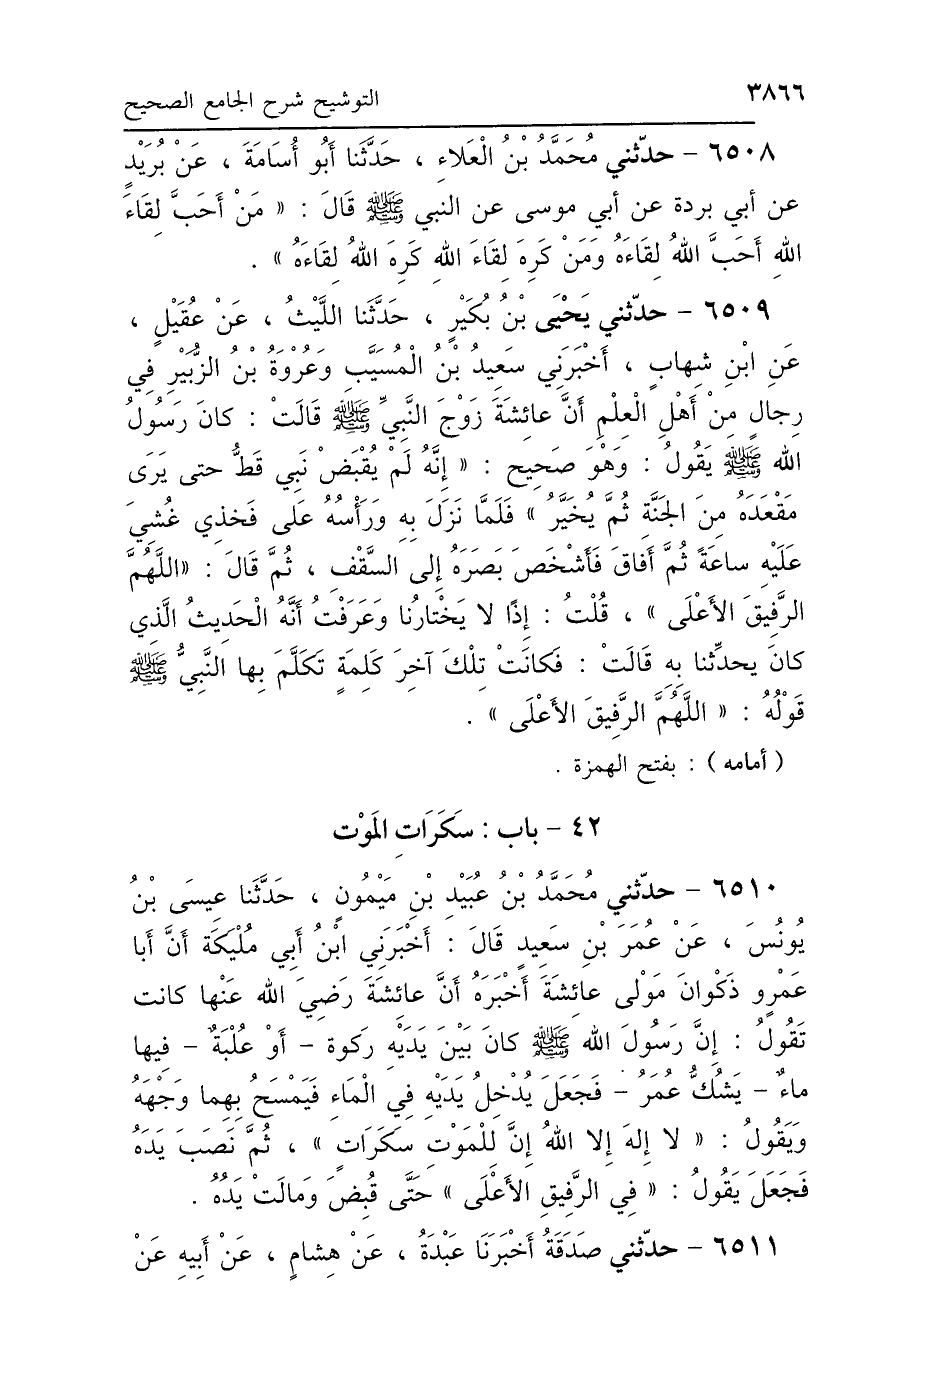 ٣٨٦٦
التوشيح شرح الجامع الصحيح
٦٥٠٨ – حدّثني مُحَمَّدُ بْنُ الْعَلاءِ ، حَدَّثَنا أَبُو أُسَامَةَ ، عَنْ بُرَيْدٍ
عن أبي بردة عن أبي موسى عن النبي ﷺ قَالَ : « مَنْ أَحَبَّ لِقَاءَ
اللهِ أَحَبَّ اللهُ لِقَاءَهُ وَمَنْ كَرِهَ لِقَاءَ اللهِ كَرِهَ اللهُ لِقَاءَهُ » .
٦٥٠٩ – حدّثني يَحْيَى بْنُ بُكَيْرٍ ، حَدَّثَنا اللَّيْثُ ، عَنْ عُقَيْلٍ ،
عَنِ ابْنِ شِهابٍ ، أَخْبَرَنِي سَعِيدُ بْنُ الْمُسَيَّبِ وَعُرْوَةُ بْنُ الزُّبَيْرِ فِي
رِجالٍ مِنْ أَهْلِ الْعِلْمِ أَنَّ عائِشَةَ زَوْجَ النَّبِيِّ ﷺ قَالَتْ : كانَ رَسُولُ
الله ﷺ يَقُولُ : وَهْوَ صَحِيح : « إِنَّهُ لَمْ يُقْبَضْ نَبِي قَطُّ حتى يَرَى
مَقْعَدَهُ مِنَ الجَنَّةِ ثُمَّ يُخَيَّرُ » فَلَمَّا نَزَلَ بِهِ وَرَأْسُهُ عَلى فَخذي غُشِيَ
عَلَيْهِ ساعَةً ثُمَّ أَفاقَ فَأَشْخَصَ بَصَرَهُ إِلى السَّقْفِ ، ثُمَّ قَالَ : «اللَّهُمَّ
الرَّفِيقَ الأَعْلَى » ، قُلْتُ : إِذًا لا يَخْتارُنا وَعَرَفْتُ أَنَّهُ الْحَدِيثُ الَّذي
كانَ يحدِّثنا بِهِ قَالَتْ : فَكانَتْ تِلْكَ آخِرَ كَلِمَةٍ تَكَلَّمَ بِها النَّبِيُّ ﷺ
قَوْلُهُ : « اللَّهُمَّ الرَّفِيقَ الأَعْلَى » .
( أمامه ) : بفتح الهمزة .
٤٢ – باب : سَكَرَاتِ المَوْت
٦٥١٠ – حدّثني مُحَمَّدُ بْنُ عُبَيْدِ بْنِ مَيْمُونٍ ، حَدَّثَنا عِيسَى بْنُ
يُونُسَ ، عَنْ عُمَرَ بْنِ سَعِيدٍ قَالَ : أَخْبَرَنِي ابْنُ أَبي مُلَيْكَةَ أَنَّ أَبا
عَمْرٍو ذَكْوانَ مَوْلى عائِشَةَ أَخْبَرَهُ أَنَّ عائِشَةَ رَضِيَ الله عَنْها كانت
تَقُولُ : إِنَّ رَسُولَ الله ﷺ كانَ بَيْنَ يَدَيْهِ ركوة – أَوْ عُلْبَةٌ – فِيها
ماءٌ – يَشُكُّ عُمَرُ – فَجَعَلَ يُدْخِلُ يَدَيْهِ فِي الْماءِ فَيَمْسَحُ بِهِما وَجْهَهُ
وَيَقُولُ : « لا إِلهَ إِلا اللهُ إِنَّ لِلْمَوْتِ سَكَرَاتٍ » ، ثُمَّ نَصَبَ يَدَهُ
فَجَعَلَ يَقُولُ : « فِي الرَّفِيقِ الأَعْلَى » حَتَّى قُبِضَ وَمالَتْ يَدُهُ .
٦٥١١ – حدّثني صَدَقَةُ أَخْبَرَنَا عَبْدَةُ ، عَنْ هِشامٍ ، عَنْ أَبِيهِ عَنْ